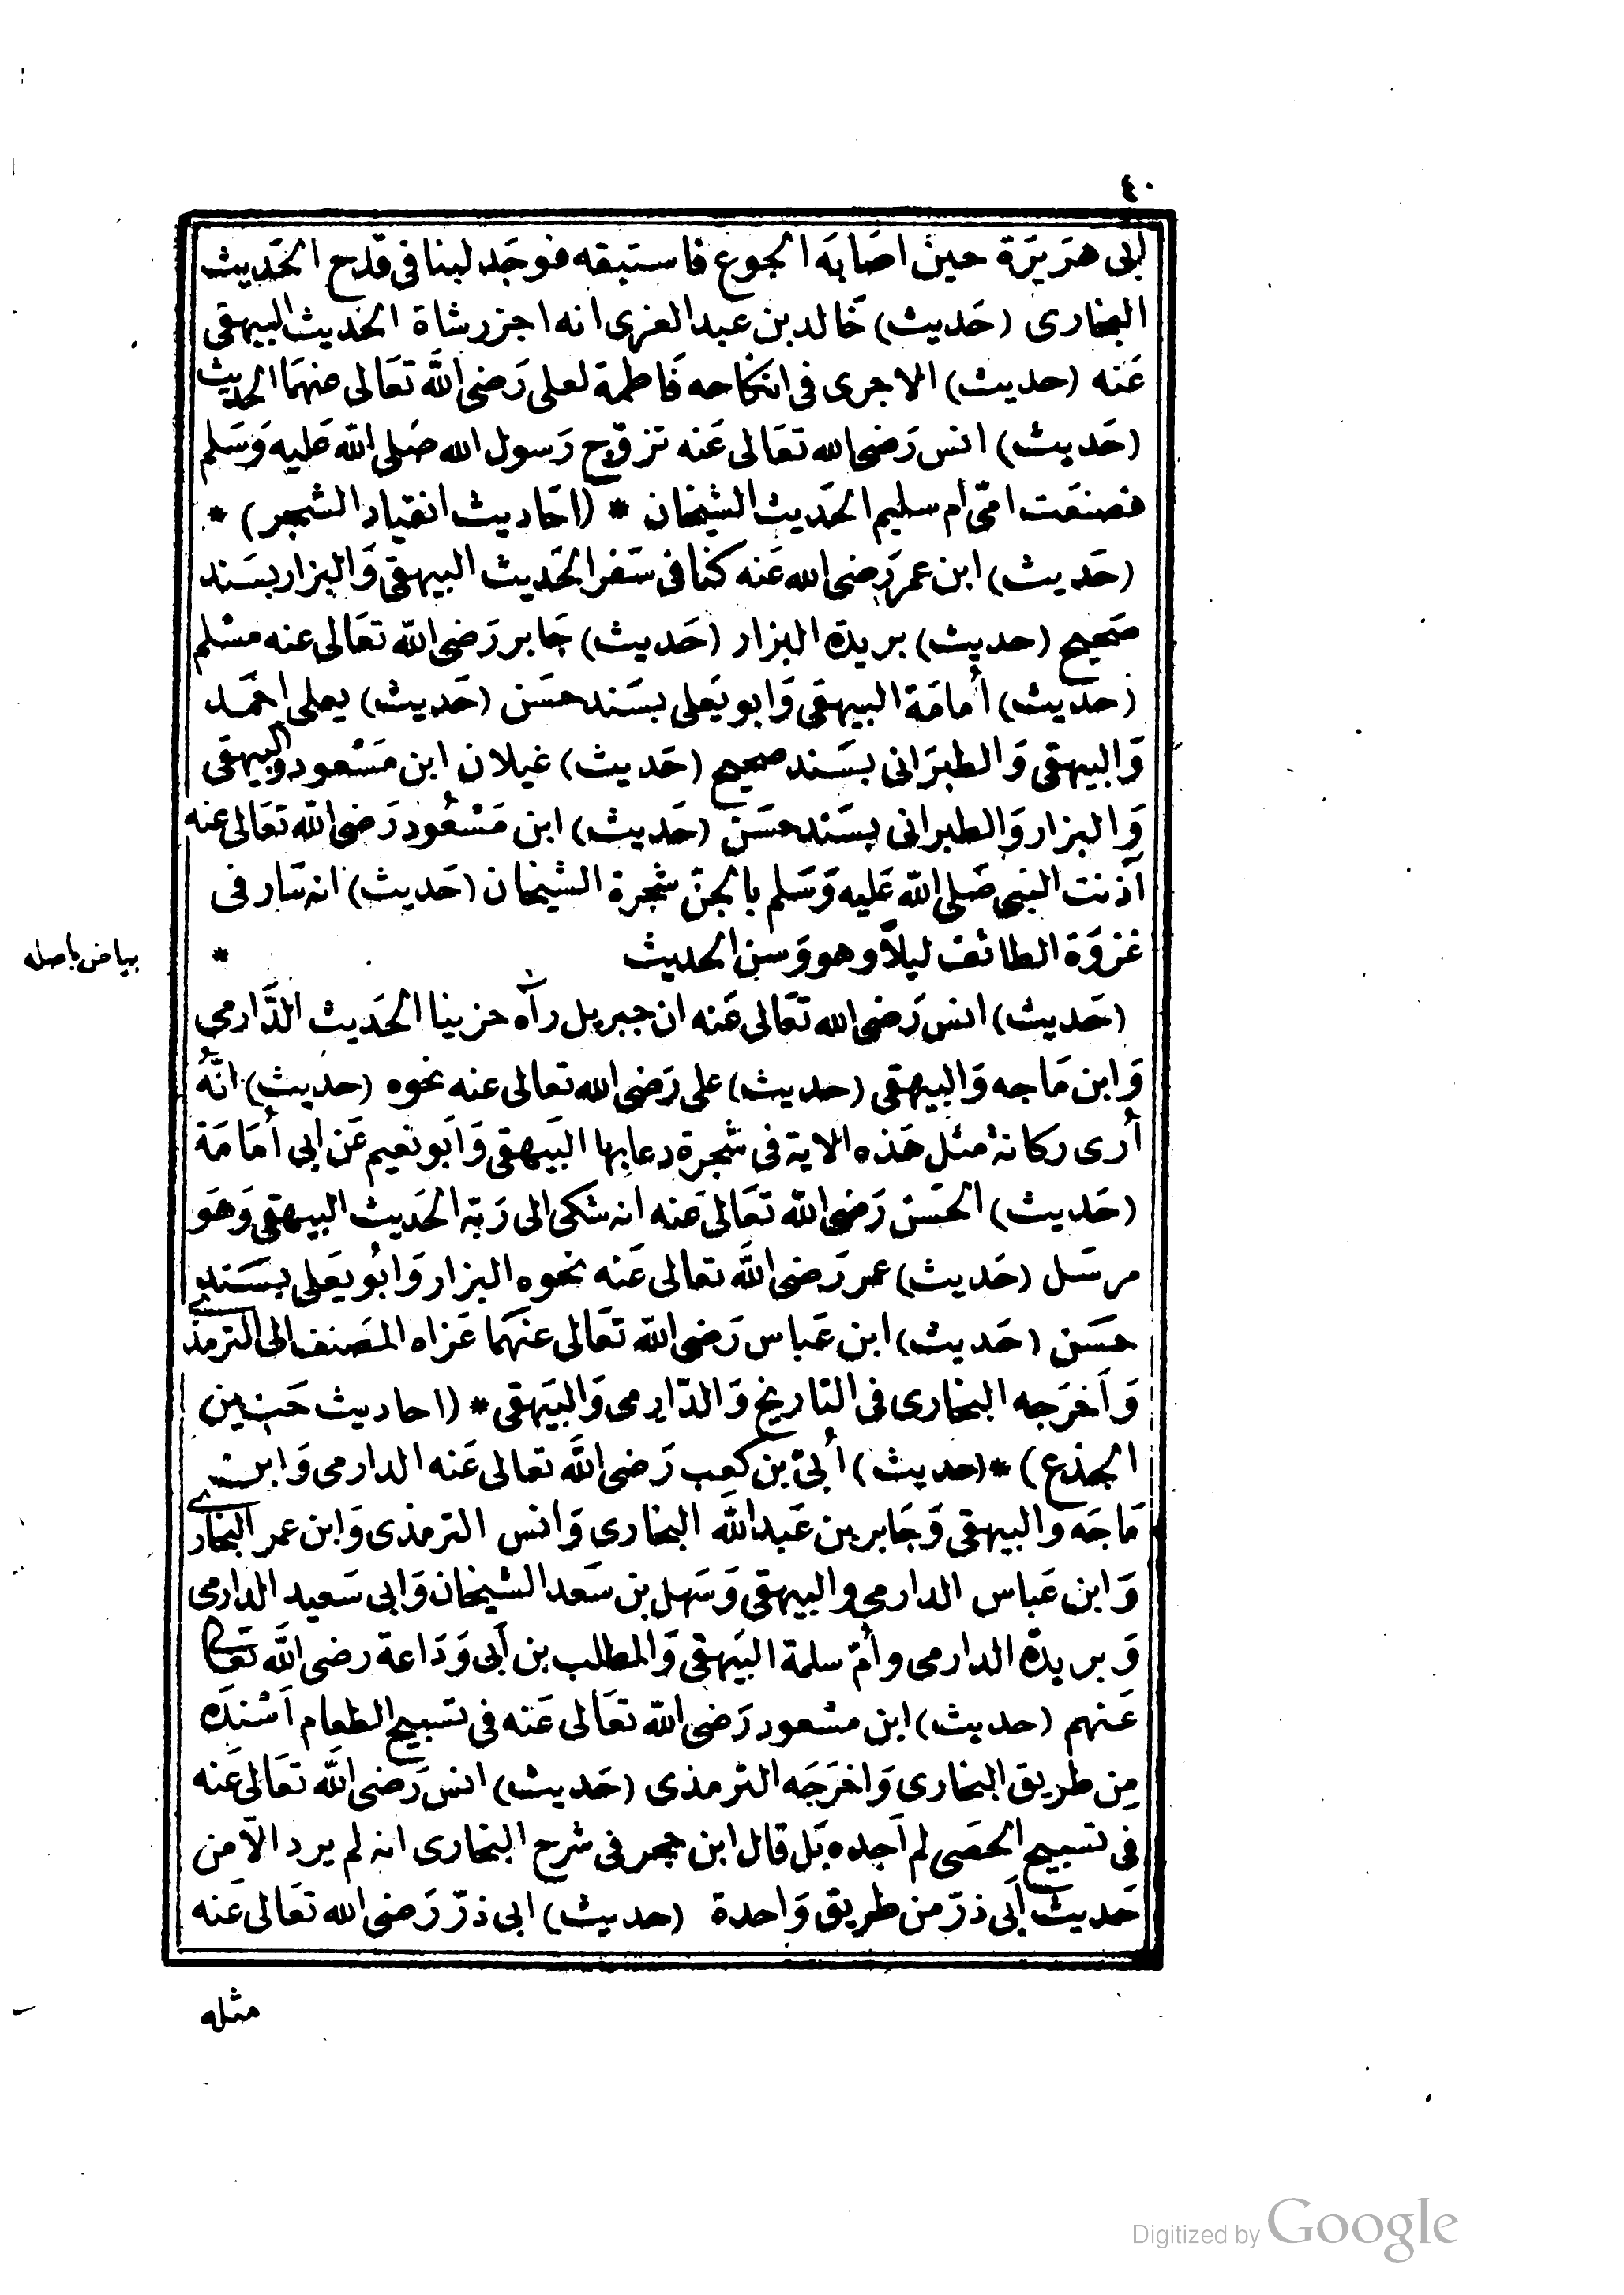 ٤٠
ابى هرَيرَة حين اصَابَه الجوع فاستبقه فوجَد لبنا فى قدح الحَديث
البخارى (حَديث) خَالد بن عبد العزى انه اجزر شاة الحَديث البيهقى
عَنه (حديث) الاجرى فى انكاحه فَاطمة لعلى رَضى الله تعَالى عنهمَا الحديث
(حَديث) انس رَضى الله تعَالى عَنه تزوّج رَسول الله صَلى الله عَليه وَسَلم
فصنعَت امّى أم سليم الحَديث الشيخان * (احَاديث انقياد الشجر) *
(حَديث) ابن عمر رَضى الله عَنه كنا فى سَفر الحَديث البيهقى وَالبزار بسَند
صَحيح (حديث) بريدة البزار (حَديث) جَابر رَضى الله تعَالى عنه مسْلم
(حَديث) أمامَة البيهقى وَابو يَعلى بسَند حسَن (حَديث) يعلى احمَد
وَالبيهقى وَالطبرَانى بسَند صحيح (حَديث) غيلان ابن مَسْعود والبيهقى
وَالبزار وَالطبرانى بسَند حسَن (حَديث) ابن مَسْعُود رَضى الله تعَالى عنه
آذنت النبى صَلى الله عَليه وَسَلم بالجنّ شجرة الشيخان (حَديث) انه سَار فى
غزوَة الطائف ليلًا وهو وَسن الحديث *
بياض باصله
(حَديث) انس رَضى الله تعَالى عَنه ان جبريل رآه حزينا الحَديث الدَّارمى
وَابن مَاجه وَالبيهقى (حديث) على رَضى الله تعالى عنه نحوه (حديث) انَّهُ
أرى ركانة مثل هَذه الاية فى شجرة دعا بها البَيهقى وَابَو نعيم عَن ابى أُمَامَة
(حَديث) الحَسَن رَضى الله تعَالى عَنه انه شكى الى رَبّه الحَديث البيهقى وَهَو
مرسَل (حَديث) عمر رَضى الله تعالى عَنه نحوه البزار وَابُو يعَلى بسَند
حسَن (حَديث) ابن عَباس رَضى الله تعَالى عنهَما عَزاه المصَنف الى الترمذى
وَأخرَجه البخارى فى التاريخ وَالدّارمى وَالبَيهقى * (احاديث حَنين
الجذع) * (حديث) أبىّ بن كعب رَضى الله تعالى عَنه الدارمى وَابن
مَاجَه والبيهقى وَجَابر بن عَبد الله البخارى وَانس الترمذى وَابن عمر البخارى
وَابن عَباس الدارمى والبيهقى وَسَهل بن سَعد الشيخان وَابى سَعيد الدارمى
وَبريدة الدارمى وأمّ سلمة البَيهقى وَالمطلب بن أبى وَدَاعة رضى الله تعَالى
عَنهم (حديث) ابن مسْعود رَضى الله تعَالى عَنه فى تسَبيح الطعام اَسْندَه
مِن طريق البخارى وَاخرَجَه الترمذى (حَديث) انس رَضى الله تعَالى عَنه
فى تسبيح الحصَى لم أجده بَل قال ابن حجر فى شرح البخارى انه لم يرد الّا من
حَديث أبَى ذرّ من طريق وَاحدة (حديث) ابى ذرّ رَضى الله تعَالى عَنه
مثله
Digitized by Google